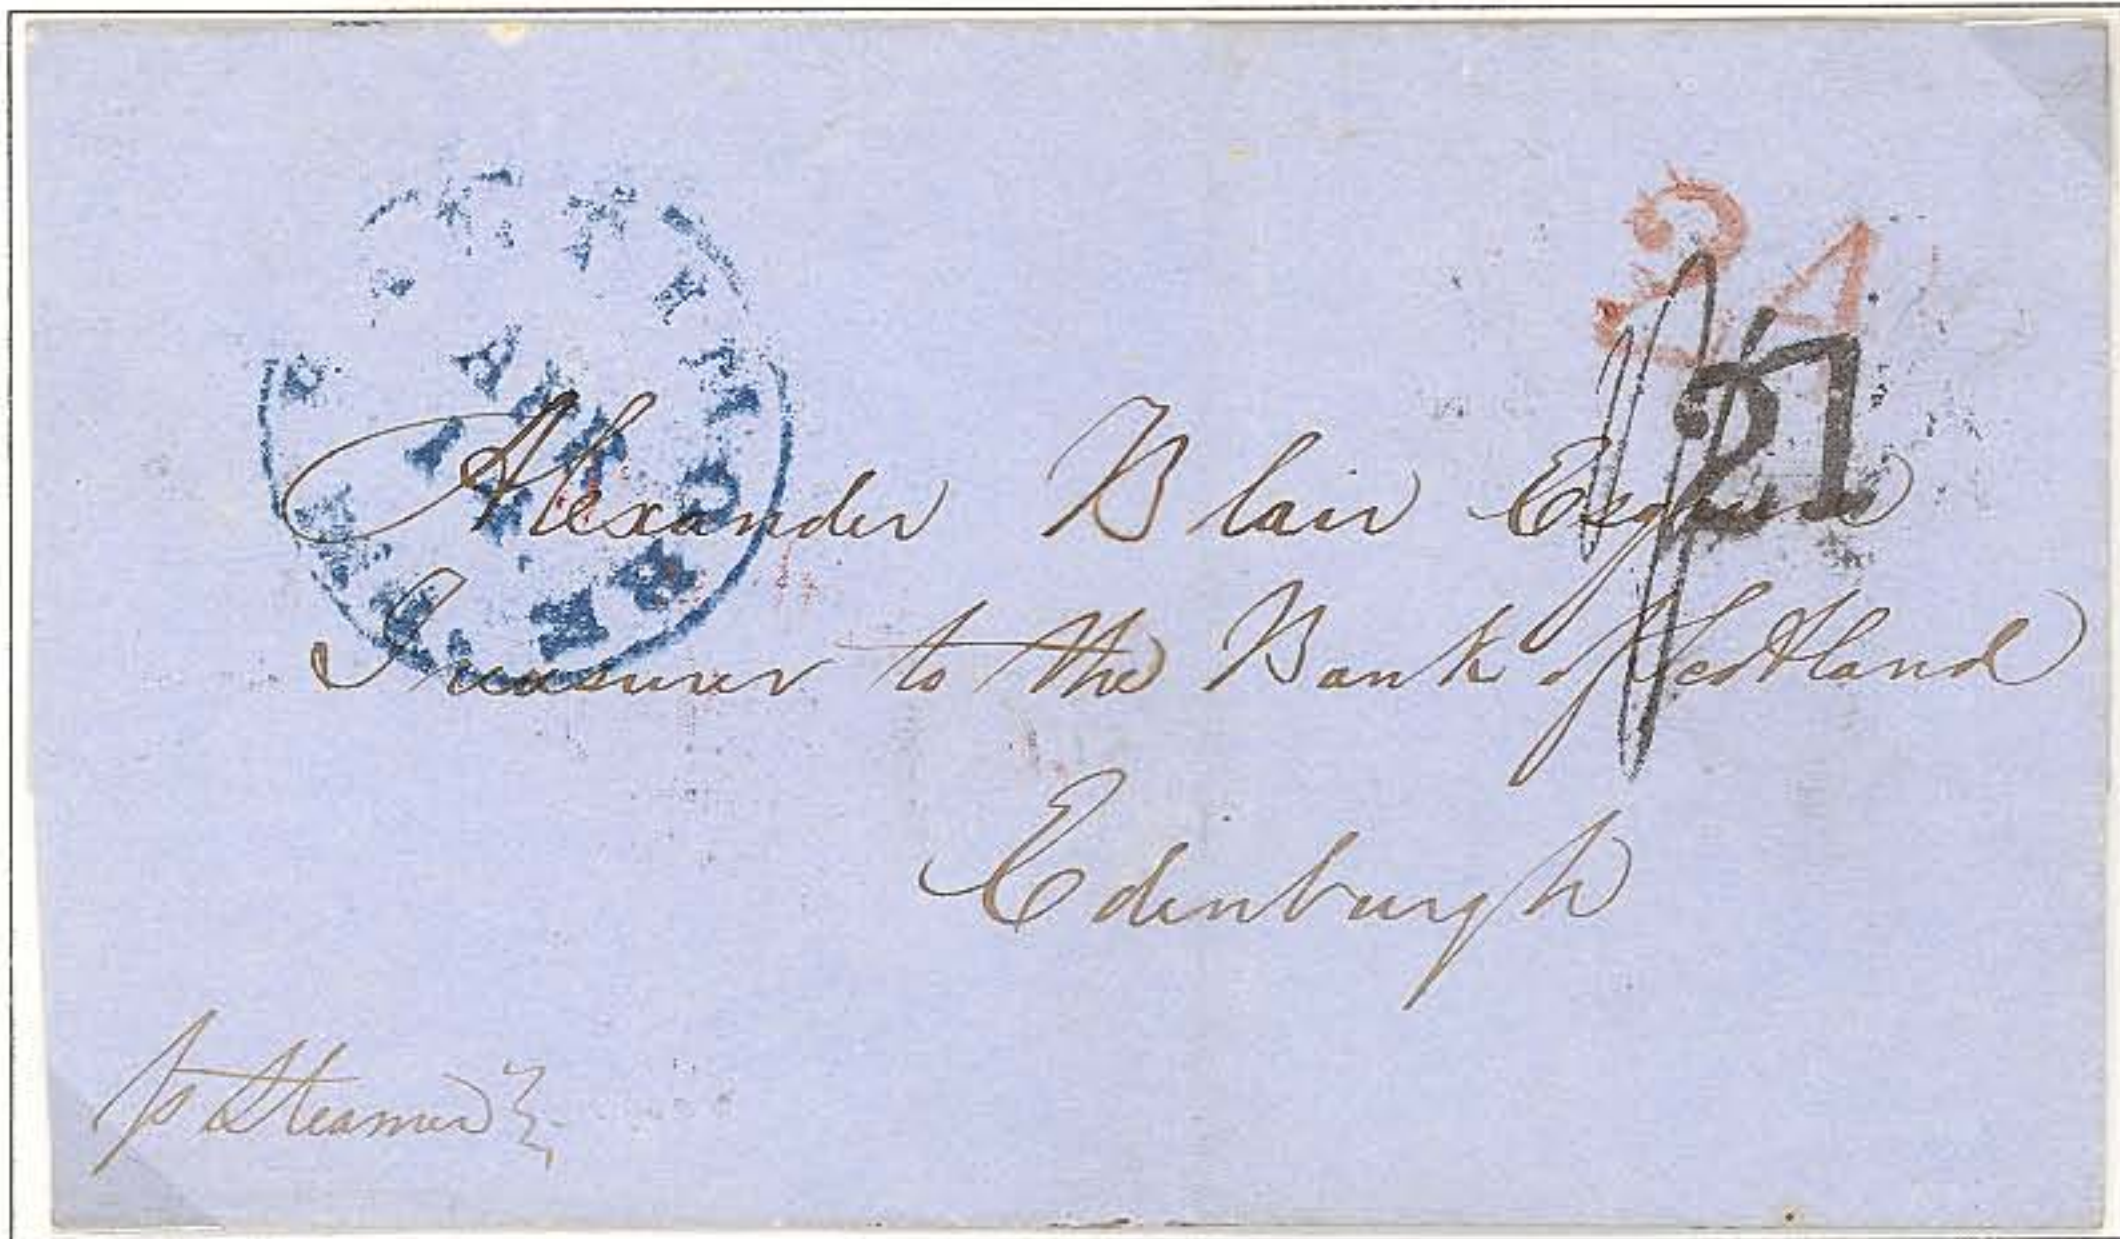 24
21
Alexander Blair Esquire
Treasurer to the Bank of Scotland
Edinburgh
p Steamer